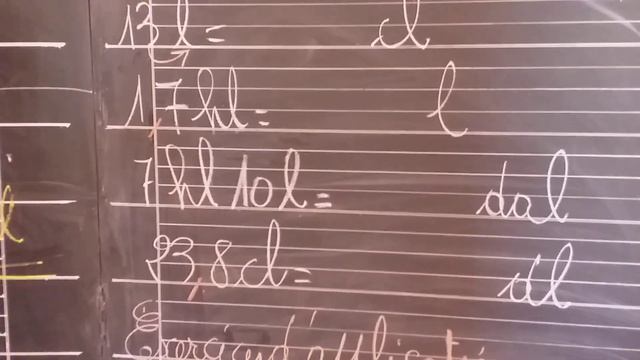 13l = cl
17hl = l
7hl 10l = dal
23,8cl = dl
Exercice d'application